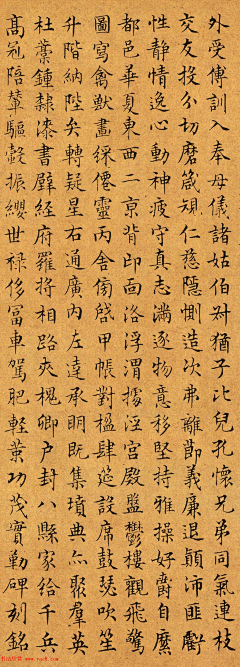 外受傅訓入奉母儀諸姑伯叔猶子比兒孔懷兄弟同氣連枝
交友投分切磨箴規仁慈隱惻造次弗離節義廉退顛沛匪虧
性靜情逸心動神疲守真志滿逐物意移堅持雅操好爵自縻
都邑華夏東西二京背邙面洛浮渭據涇宮殿盤鬱樓觀飛驚
圖寫禽獸畫綵僊靈丙舍傍啓甲帳對楹肆筵設席鼓瑟吹笙
升階納陛弁轉疑星右通廣內左達承明既集墳典亦聚群英
杜藁鍾隸漆書壁經府羅將相路夾槐卿戶封八縣家給千兵
高冠陪輦驅轂振纓世祿侈富車駕肥輕策功茂實勒碑刻銘